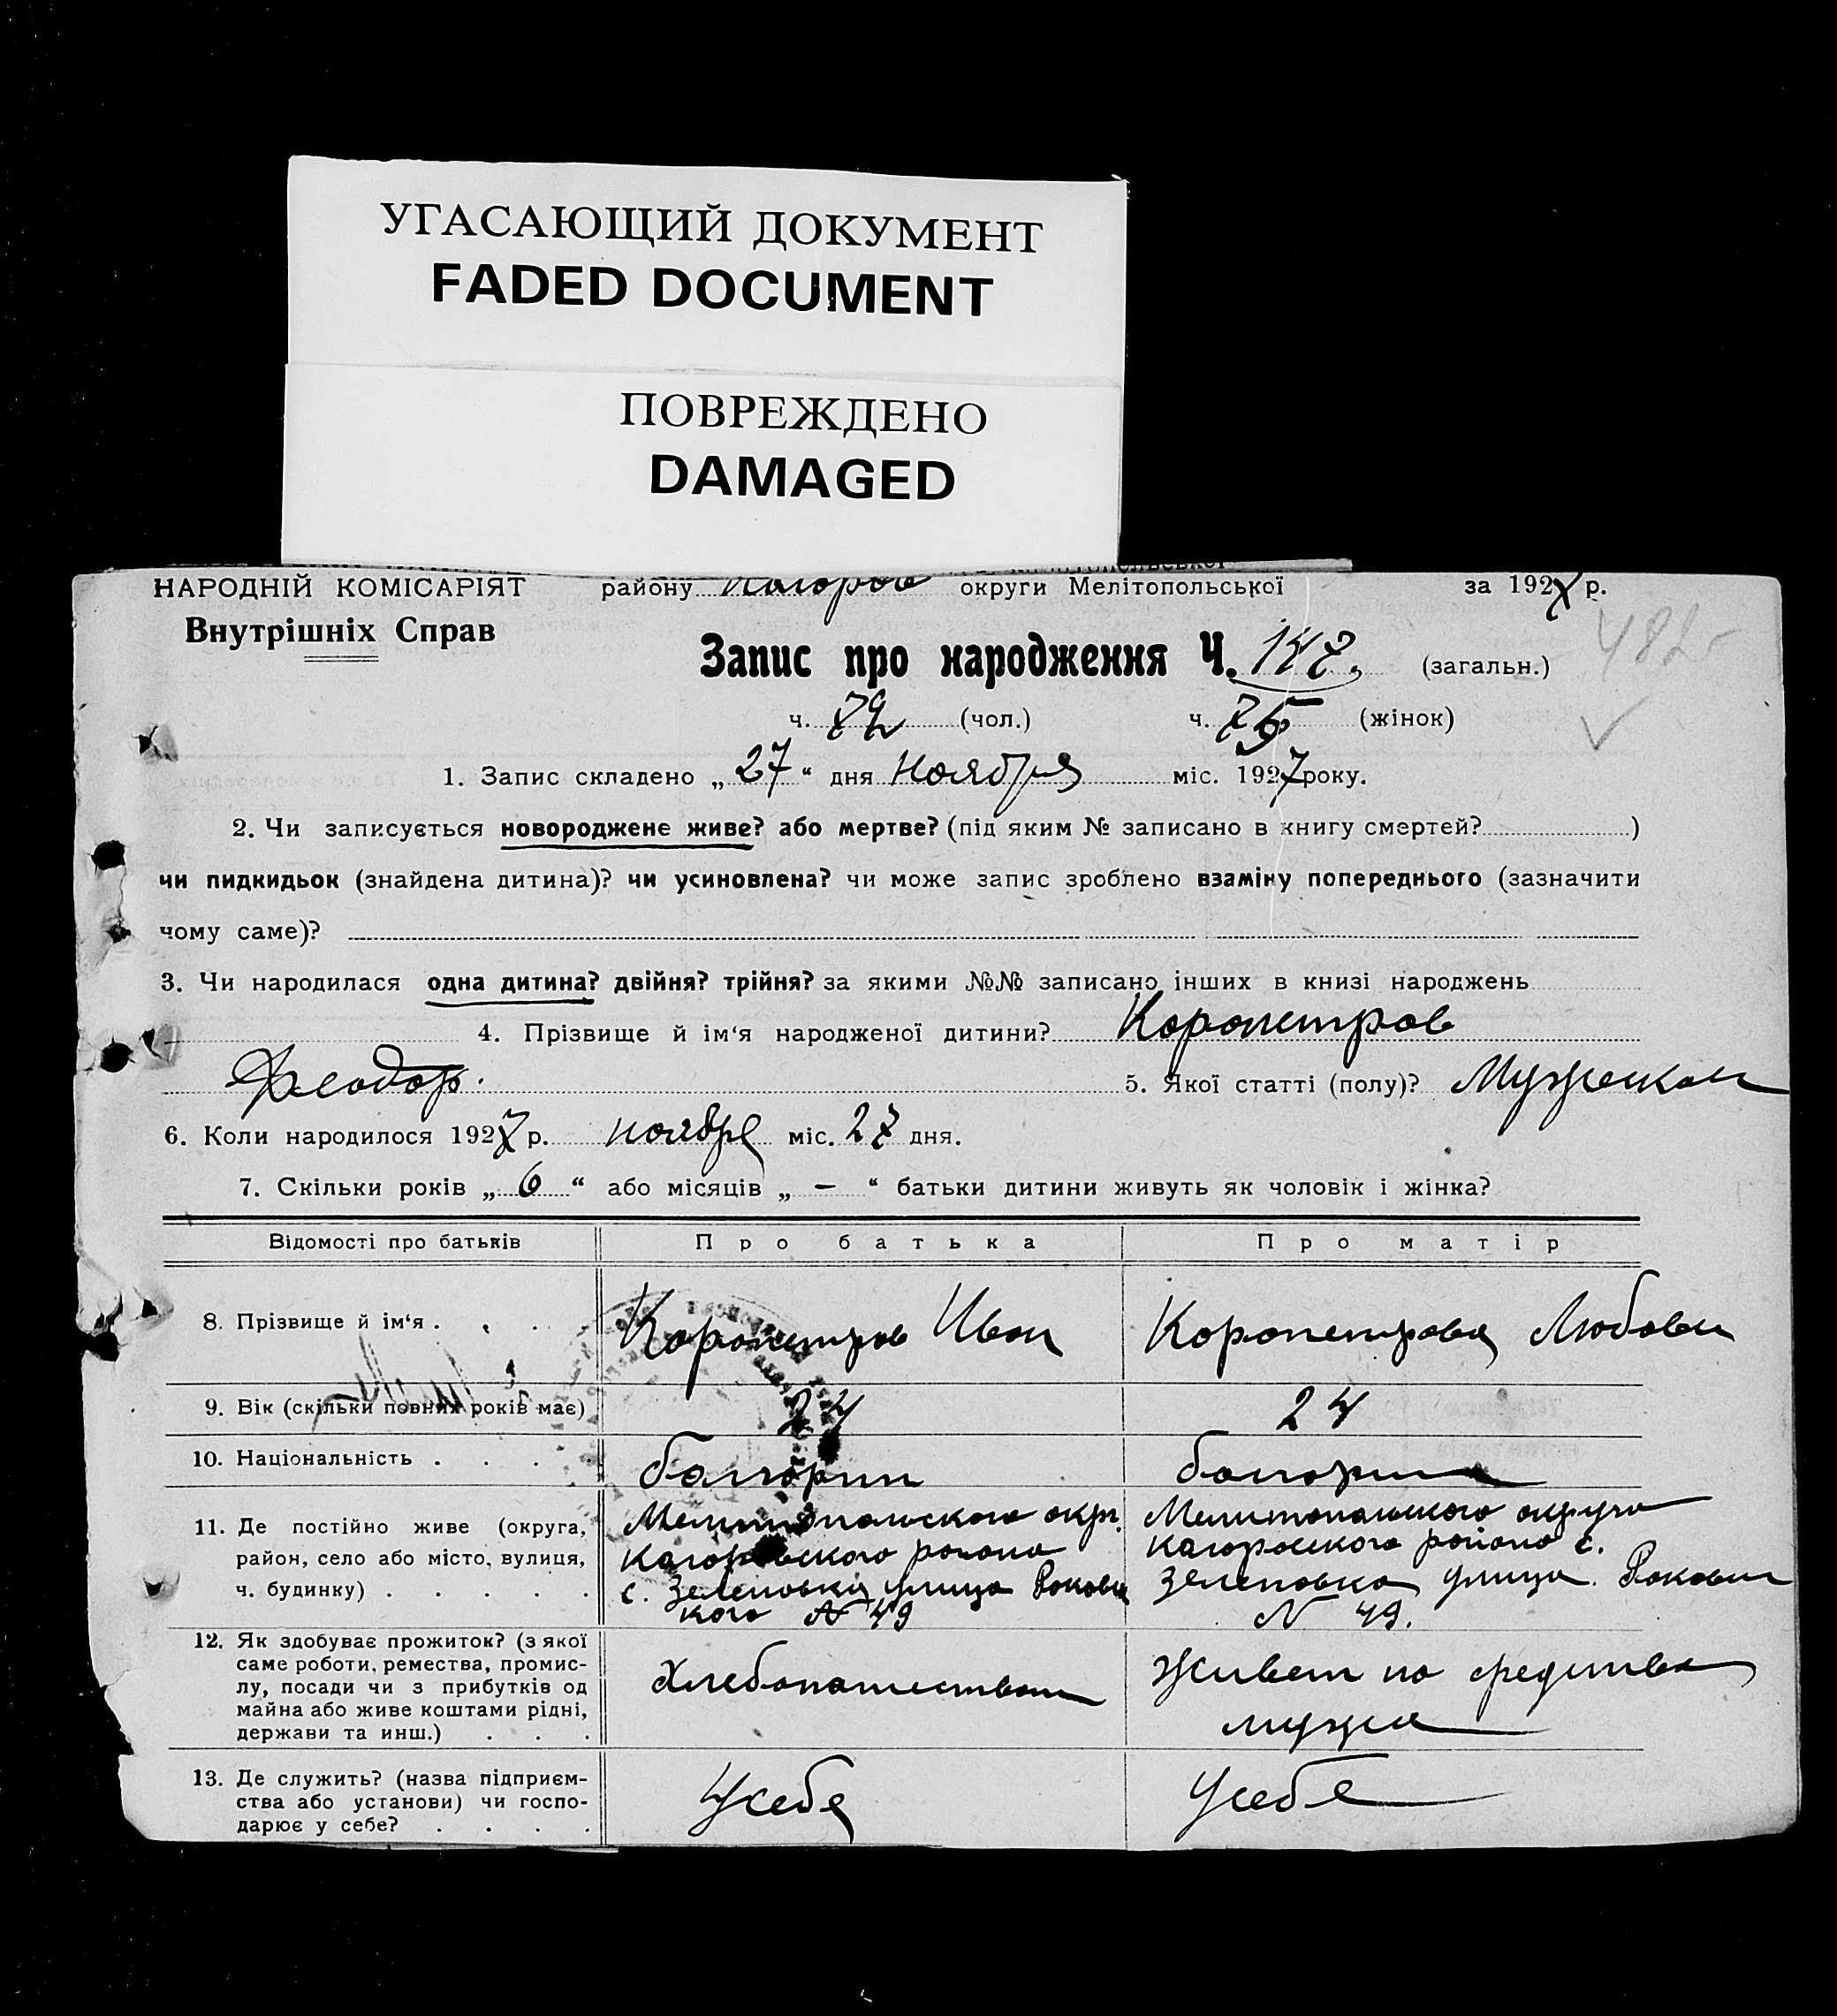 УГАСАЮЩИЙ ДОКУМЕНТ
FADED DOCUMENT
ПОВРЕЖДЕНО
DAMAGED
НАРОДНІЙ КОМІСАРІЯТ району округи Мелітопольської за 1927 р.
Внутрішніх Справ
Запис про народження Ч. 147. (загальн.)
482
ч. 72 (чол.) ч. 75 (жінок)
1. Запис складено „27“ дня Ноября міс. 1927 року.
2. Чи записується новороджене живе? або мертве? (під яким № записано в книгу смертей? )
чи пидкидьок (знайдена дитина)? чи усиновлена? чи може запис зроблено взаміну попереднього (зазначити
чому саме)?
3. Чи народилася одна дитина? двійня? трійня? за якими №№ записано інших в книзі народжень
4. Прізвище й ім‘я народженої дитини? Коропетров
Феодор. 5. Якої статті (полу)? Мужескои
6. Коли народилося 1927 р. ноября міс. 27 дня.
7. Скільки років „6“ або місяців „–“ батьки дитини живуть як чоловік і жінка?
Відомості про батьків Про батька Про матір
8. Прізвище й ім‘я . . . Коропетров Иван Коропетрова Любовь
9. Вік (скільки повних років має) 24 24
10. Національність . . . . болгарин
11. Де постійно живе (округа, район, село або місто, вулиця, ч. будинку) . . . . . Мелитопольского окр. Мелитопольского округа
с. Зеленовка улица № 49 Зеленовка улица № 49.
12. Як здобуває прожиток? (з якої саме роботи, ремества, промислу, посади чи з прибутків од майна або живе коштами рідні, держави та инш.) . . . Хлебопашеством Живет на средства
мужа
13. Де служить? (назва підприємства або установи) чи господарює у себе? . . . . У себя У себя